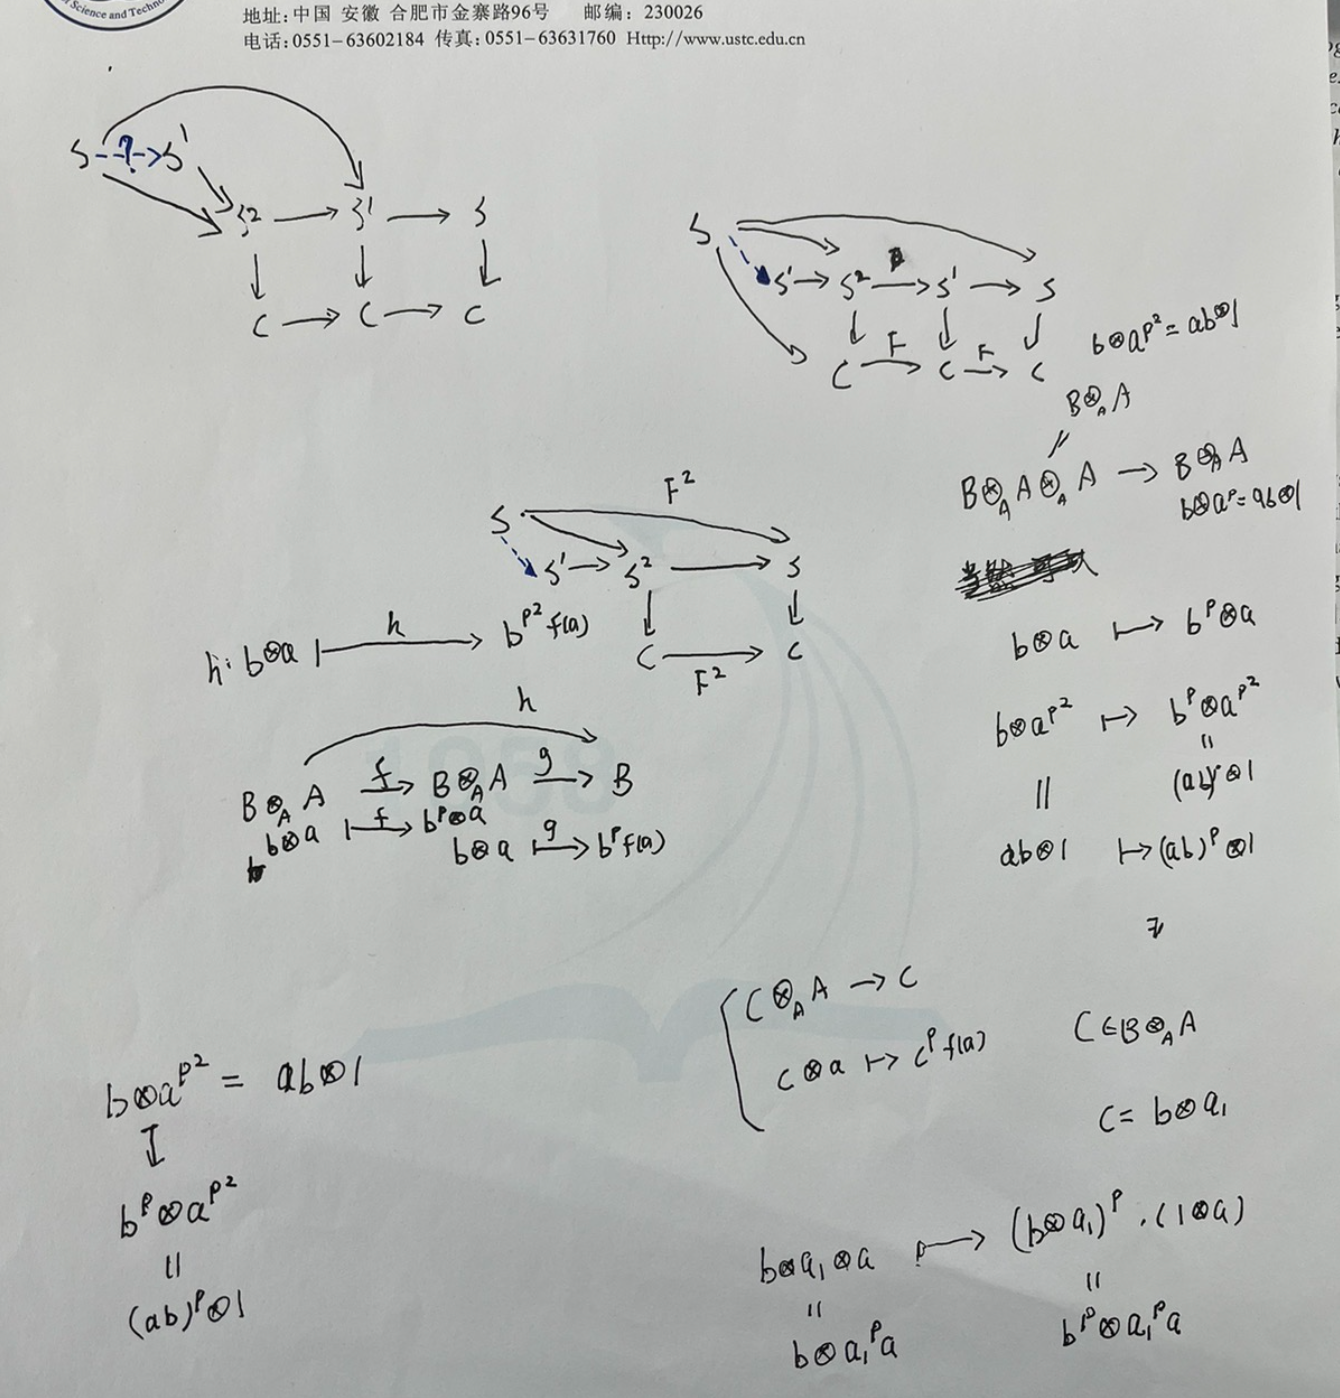 Science and Techno
地址:中国 安徽 合肥市金寨路96号 邮编: 230026
电话:0551-63602184 传真:0551-63631760 Http://www.ustc.edu.cn
S --?--> S'
S² → S' → S
↓ ↓ ↓
C → C → C
S
S' → S² → S' → S
↓ ↓ ↓
C F→ C F→ C
b⊗a^{p²} = ab⊗1
B⊗_A A
//
B⊗_A A⊗_A A → B⊗_A A
b⊗a^p = ab⊗1
F²
S
S' → S² → S
↓ ↓
C → C
F²
h: b⊗a |—h→ b^{p²} f(a)
h
B⊗_A A f→ B⊗_A A g→ B
b⊗a |—f→ b^p⊗a
b⊗a |—g→ b^p f(a)
b⊗a ↦ b^p⊗a
b⊗a^{p²} ↦ b^p⊗a^{p²}
|| ||
(ab)^p⊗1
ab⊗1 ↦ (ab)^p⊗1
C⊗_A A → C
c⊗a ↦ c^p f(a)
C∈B⊗_A A
C = b⊗a₁
b⊗a^{p²} = ab⊗1
↧
b^p⊗a^{p²}
||
(ab)^p⊗1
b⊗a₁⊗a ↦ (b⊗a₁)^p · (1⊗a)
|| ||
b⊗a₁^p a b^p⊗a₁^p a